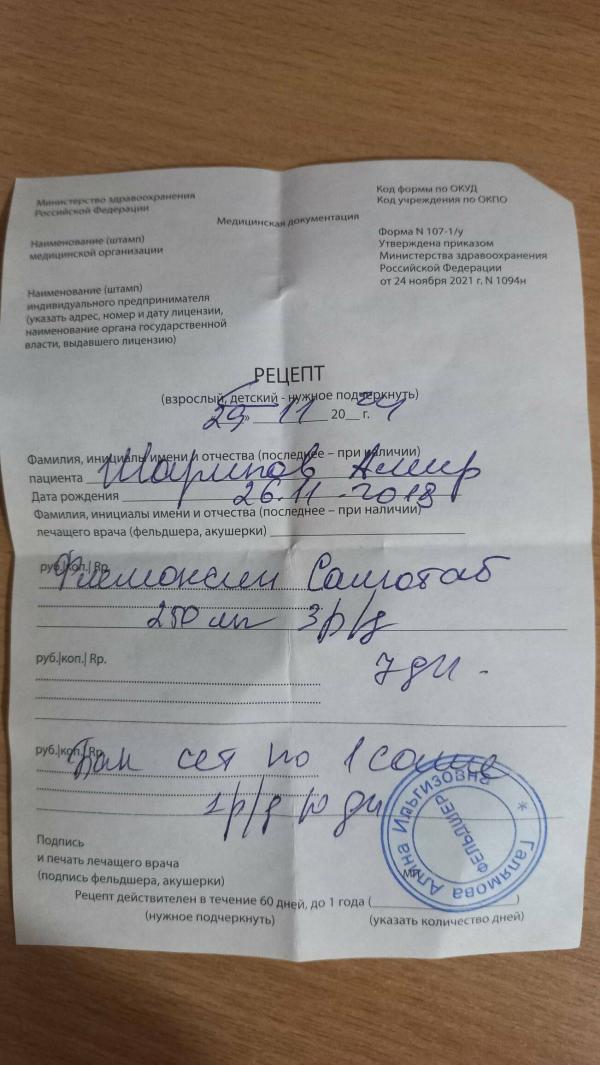 Министерство здравоохранения
Российской Федерации
Код формы по ОКУД
Код учреждения по ОКПО
Медицинская документация
Наименование (штамп)
медицинской организации
Форма N 107-1/у
Утверждена приказом
Министерства здравоохранения
Российской Федерации
от 24 ноября 2021 г. N 1094н
Наименование (штамп)
индивидуального предпринимателя
(указать адрес, номер и дату лицензии,
наименование органа государственной
власти, выдавшего лицензию)
РЕЦЕПТ
(взрослый, детский - нужное подчеркнуть)
29» 11 2024 г.
Фамилия, инициалы имени и отчества (последнее – при наличии)
пациента Шарипов Амир
Дата рождения 26.11.2018
Фамилия, инициалы имени и отчества (последнее – при наличии)
лечащего врача (фельдшера, акушерки)
руб.|коп.| Rp.
Флемоксин Солютаб
250 мг 3р/д
руб.|коп.| Rp.
7 дн.
руб.|коп.| Rp.
Бак сет по 1 саше
1р/д 10 дн
Подпись
и печать лечащего врача
(подпись фельдшера, акушерки)
МП
Галямова Алина Ильгизовна *
ФЕЛЬДШЕР
Рецепт действителен в течение 60 дней, до 1 года (
)
(нужное подчеркнуть)
(указать количество дней)